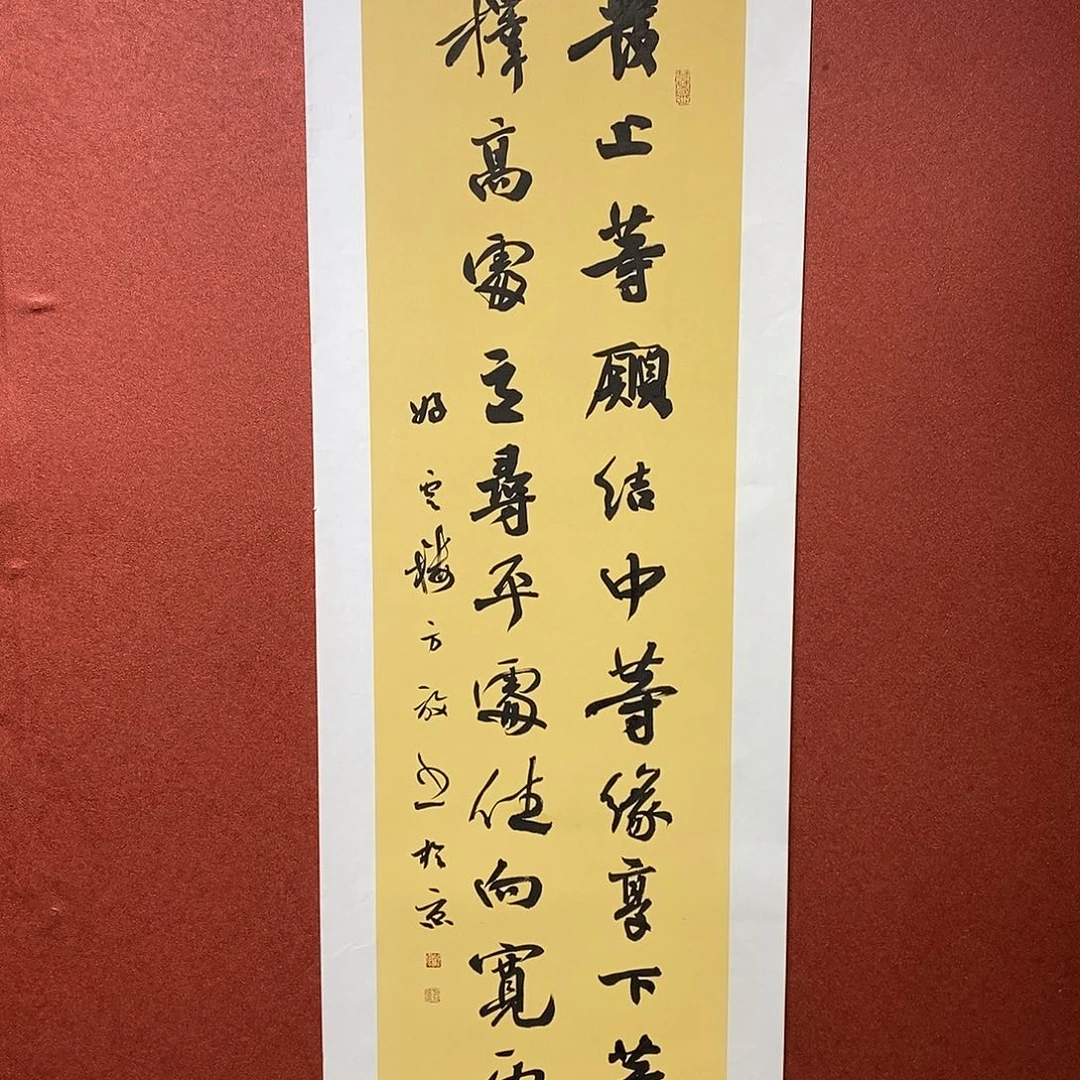 發上等願結中等緣享下等
擇高處立尋平處住向寬處
方放書於京